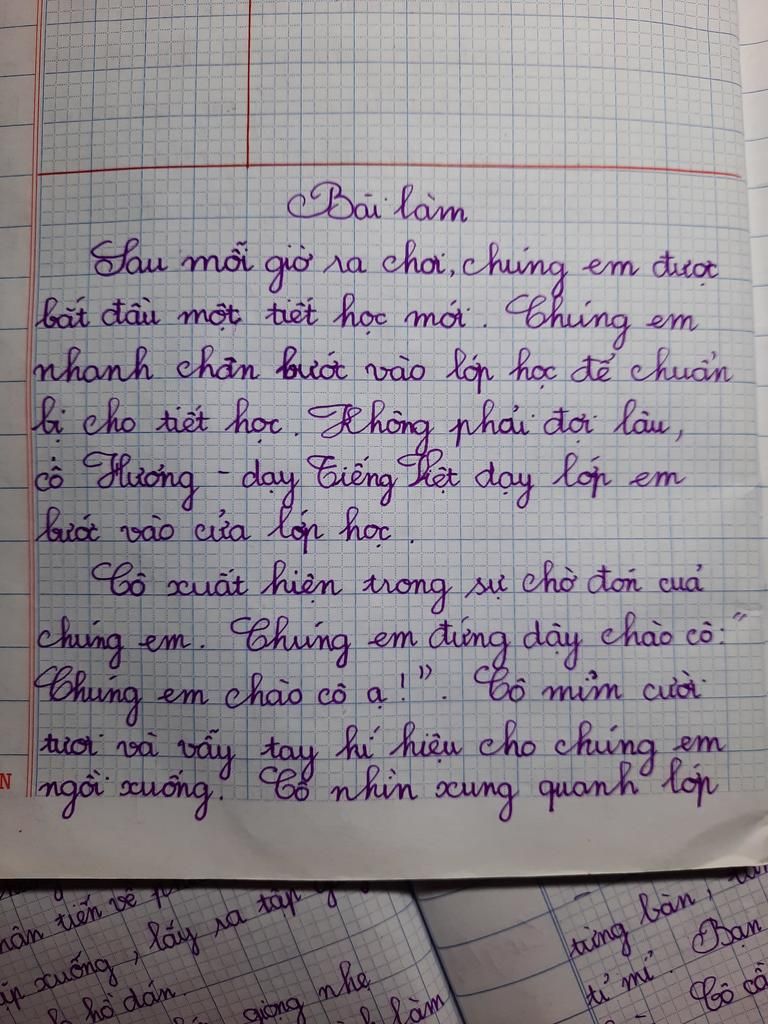 Bài làm
Sau mỗi giờ ra chơi, chúng em được
bắt đầu một tiết học mới. Chúng em
nhanh chân bước vào lớp học để chuẩn
bị cho tiết học. Không phải đợi lâu,
cô Hương - dạy Tiếng Việt dạy lớp em
bước vào cửa lớp học.
Cô xuất hiện trong sự chờ đón của
chúng em. Chúng em đứng dậy chào cô: "
Chúng em chào cô ạ!". Cô mỉm cười
tươi và vẫy tay kí hiệu cho chúng em
ngồi xuống. Cô nhìn xung quanh lớp
N
tiến về
xuống, lấy ra tập
hồ dán.
giọng nhẹ
làm
từng bàn,
tỉ mỉ. Bạn
Cô